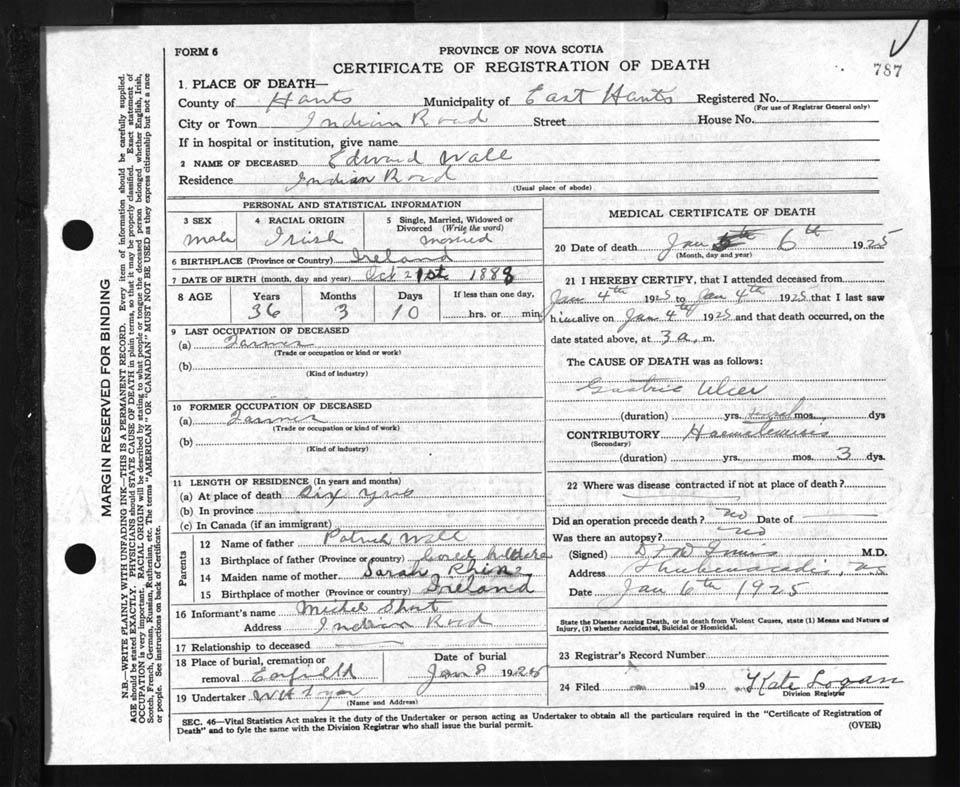 787
FORM 6
PROVINCE OF NOVA SCOTIA
CERTIFICATE OF REGISTRATION OF DEATH
1. PLACE OF DEATH—
County of Hants Municipality of East Hants Registered No.
(For use of Registrar General only)
City or Town Indian Road Street House No.
If in hospital or institution, give name
2 NAME OF DECEASED Edward Wall
Residence Indian Road
(Usual place of abode)
MARGIN RESERVED FOR BINDING
N.B.—WRITE PLAINLY WITH UNFADING INK—THIS IS A PERMANENT RECORD. Every item of information should be carefully supplied.
AGE should be stated EXACTLY. PHYSICIANS should STATE CAUSE OF DEATH in plain terms, so that it may be properly classified. Exact statement of
OCCUPATION is very important. RACIAL ORIGIN will be described by stating to what people or tongue the deceased person belonged whether English, Irish,
Scotch, French, German, Russian, Ruthenian, etc. The terms "AMERICAN" OR "CANADIAN" MUST NOT BE USED as they express citizenship but not a race
or people. See instructions on back of Certificate.
PERSONAL AND STATISTICAL INFORMATION
3 SEX
male
4 RACIAL ORIGIN
Irish
5 Single, Married, Widowed or
Divorced (Write the word)
married
6 BIRTHPLACE (Province or Country) Ireland
7 DATE OF BIRTH (month, day and year) Oct 21st 1888
8 AGE Years Months Days If less than one day,
36 3 10 hrs. or min.
9 LAST OCCUPATION OF DECEASED
(a) Farmer
(Trade or occupation or kind or work)
(b)
(Kind of industry)
10 FORMER OCCUPATION OF DECEASED
(a) Farmer
(Trade or occupation or kind of work)
(b)
(Kind of industry)
11 LENGTH OF RESIDENCE (In years and months)
(a) At place of death Six yrs
(b) In province
(c) In Canada (if an immigrant)
Parents
12 Name of father Patrick Wall
13 Birthplace of father (Province or country) Kildare
14 Maiden name of mother Sarah
15 Birthplace of mother (Province or country) Ireland
16 Informant's name Michel
Address Indian Road
17 Relationship to deceased
18 Place of burial, cremation or
removal Enfield
Date of burial
Jan 8 1925
19 Undertaker
(Name and Address)
MEDICAL CERTIFICATE OF DEATH
20 Date of death Jan 6th 1925
(Month, day and year)
21 I HEREBY CERTIFY, that I attended deceased from
Jan 4th 1925 to Jan 4th 1925 that I last saw
him alive on Jan 4th 1925 and that death occurred, on the
date stated above, at 3 a. m.
The CAUSE OF DEATH was as follows:
Gastric Ulcer
(duration) yrs. mos. dys
CONTRIBUTORY Haematemesis
(Secondary)
(duration) yrs. mos. 3 dys.
22 Where was disease contracted if not at place of death?
Did an operation precede death? no Date of
Was there an autopsy? no
(Signed) M.D.
Address Shubenacadie, NS
Date Jan 6th 1925
State the Disease causing Death, or in death from Violent Causes, state (1) Means and Nature of
Injury, (2) whether Accidental, Suicidal or Homicidal.
23 Registrar's Record Number
24 Filed 19 Kate Logan
Division Registrar
SEC. 46—Vital Statistics Act makes it the duty of the Undertaker or person acting as Undertaker to obtain all the particulars required in the "Certificate of Registration of
Death" and to fyle the same with the Division Registrar who shall issue the burial permit.
(OVER)